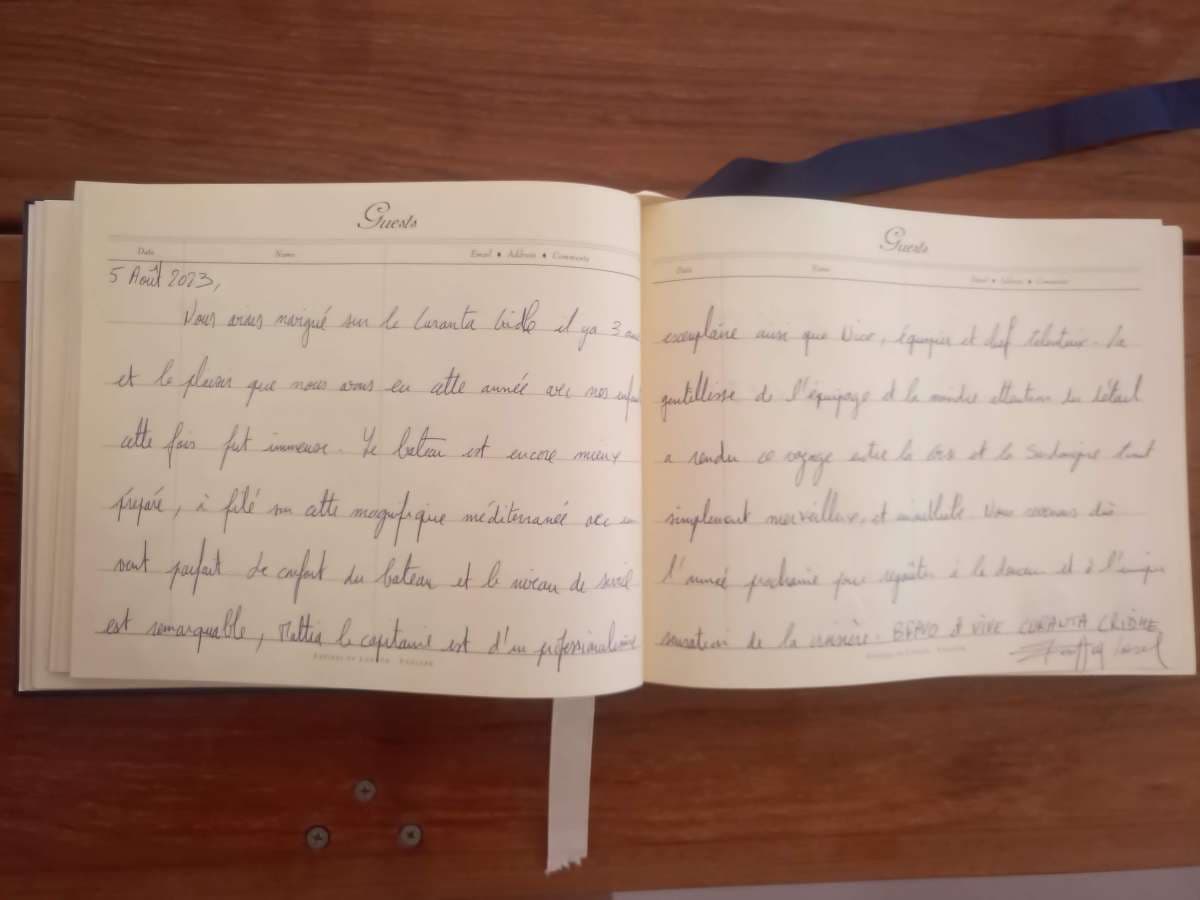 Guests
Date Name Email ♦ Address ♦ Comments
5 Août 2023,
Nous avions navigué sur le Curanta Cridhe il y a 3 ans
et le plaisir que nous avons eu cette année avec nos enfants
cette fois fut immense. Le bateau est encore mieux
préparé, a filé sur cette magnifique méditerranée avec un
vent parfait Le confort du bateau et le niveau de service
est remarquable, Mattia le capitaine est d'un professionnalisme
Guests
Date Name Email ♦ Address ♦ Comments
exemplaire aussi que équipier et chef talentueux. La
gentillesse de l'équipage et la moindre attention du détail
a rendu ce voyage entre la Corse et la Sardaigne tout
simplement merveilleux, et inoubliable. Nous revenons dès
l'année prochaine pour regoûter à la douceur et à l'unique
sensation de la croisière. BRAVO & VIVE CURANTA CRIDHE